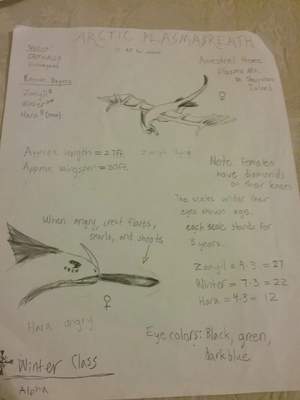 ARCTIC PLASMABREATH
Status
CRITICALLY
Endangered
Known Dragons
Zongil ♀
Winter
Hara ♀
Ancestral Home
Plasma Mt.
Island
♀
Approx length = 27ft
Zongil flying
Approx wingspan = 30ft
Note: Females
have Diamonds
on their knees
The scales under their
eyes shown age.
each scale stands for
3 years.
When angry, crest flares,
snarls, and shoots
Zongil = 9·3 = 27
Winter = 7·3 = 22
Hara = 4·3 = 12
♀
Hara angry
Eye colors: Black, green,
dark blue
Winter Class
Alpha